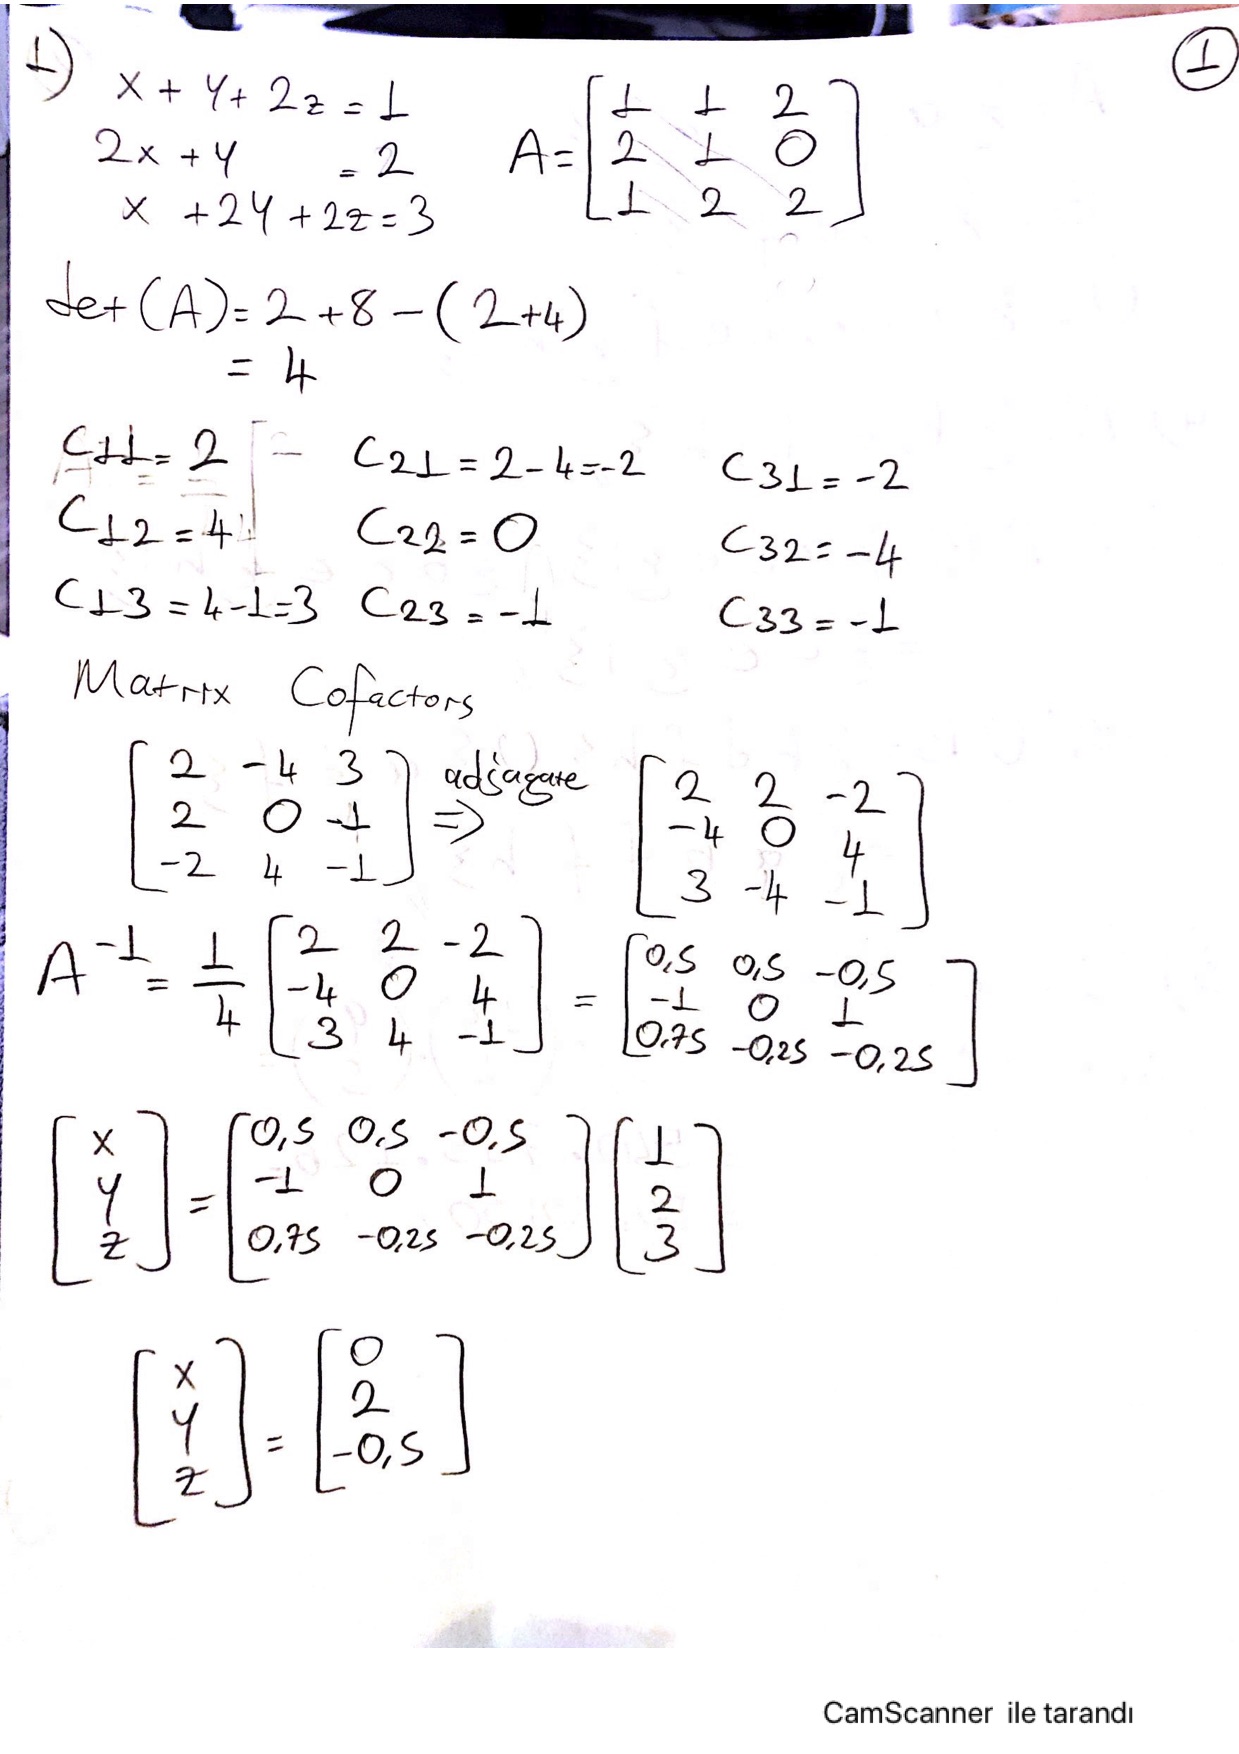 1)
①
x + y + 2z = 1
2x + y = 2
x + 2y + 2z = 3
A = [1 1 2
2 1 0
1 2 2]
det(A) = 2 + 8 - (2+4)
= 4
C11 = 2 C21 = 2-4=-2 C31 = -2
C12 = 4 C22 = 0 C32 = -4
C13 = 4-1=3 C23 = -1 C33 = -1
Matrix Cofactors
[2 -4 3
2 0 -1
-2 4 -1]
adjagate
⇒
[2 2 -2
-4 0 4
3 -4 -1]
A^-1 = 1/4 [2 2 -2
-4 0 4
3 4 -1]
= [0,5 0,5 -0,5
-1 0 1
0.75 -0,25 -0,25]
[x
y
z]
= [0,5 0,5 -0,5
-1 0 1
0,75 -0,25 -0,25]
[1
2
3]
[x
y
z]
= [0
2
-0,5]
CamScanner ile tarandı